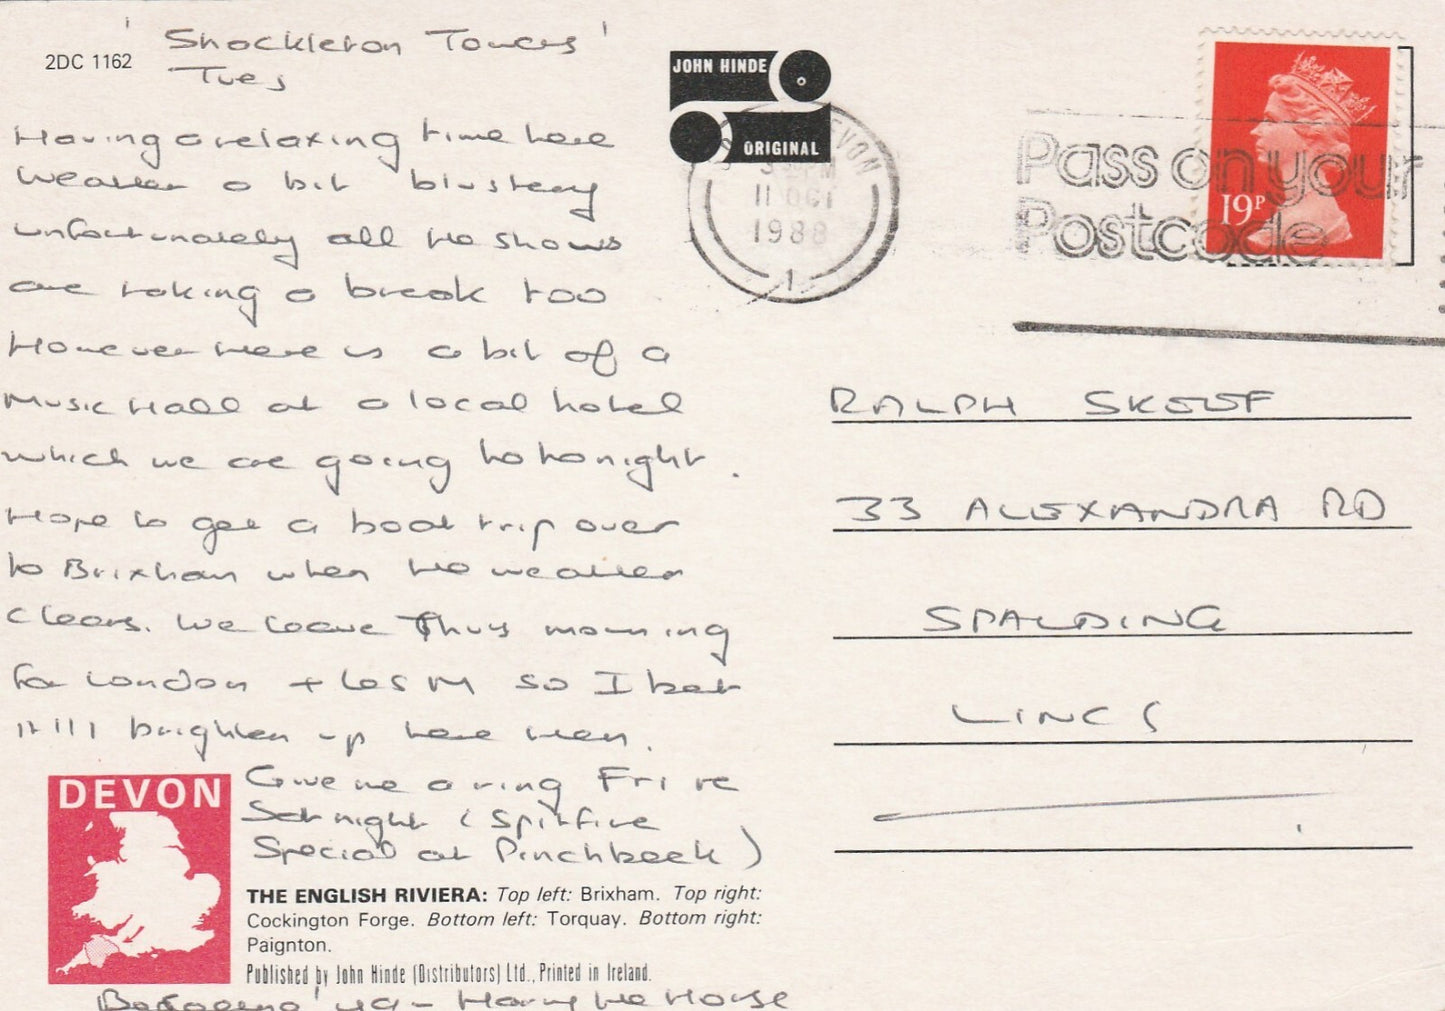 'Shockleton Towers'
2DC 1162
Tues
Having a relaxing time here
weather a bit blustery
unfortunately all the shows
are taking a break too
However there is a bit of a
Music Hall at a local hotel
which we are going to tonight.
Hope to get a boat trip over
to Brixham when the weather
clears. We leave Thurs morning
for London + Les M so I bet
it'll brighten up here then.
Give me a ring Fri re
Sat night (Spitfire
Special at Pinchbeck)
DEVON
THE ENGLISH RIVIERA: Top left: Brixham. Top right:
Cockington Forge. Bottom left: Torquay. Bottom right:
Paignton.
Published by John Hinde (Distributors) Ltd., Printed in Ireland.
Harry the Horse
JOHN HINDE
ORIGINAL
DEVON
PM
11 OCT
1988
1
Pass on your
Postcode
19P
RALPH SKEEF
33 ALEXANDRA RD
SPALDING
LINCS